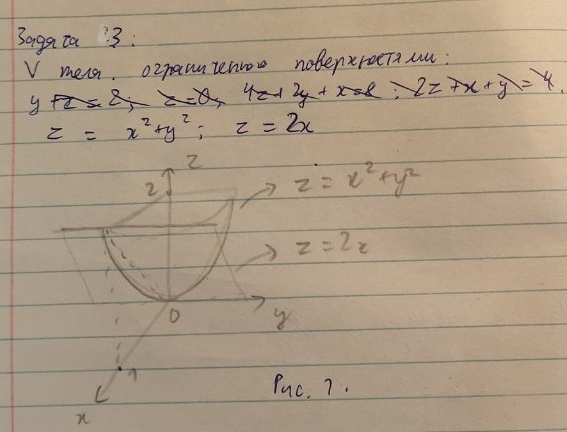 Задача 3:
V тела. ограниченно поверхностями:
y + z = 2; z = 0, 4z + 2y + x = 8 ; 2z + x + y = 4.
z = x² + y² ; z = 2x
z
2
z = x² + y²
z = 2x
0
y
1
x
Рис. 1.